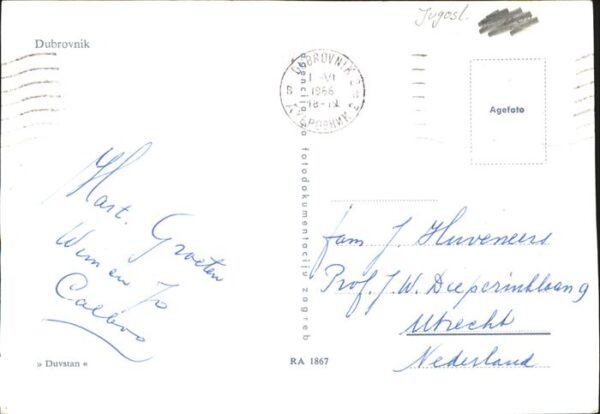 Jugosl.
Dubrovnik
DUBROVNIK 2
1 -VI
1966
18-19
ДУБРОВНИК 2
Agefoto
agencija za fotodokumentaciju zagreb
Hart. Groeten
Wim en Jo
fam J. Huveneers
Prof. J. W. Dieperinklaan 9
Utrecht
Nederland
» Duvstan «
RA 1867